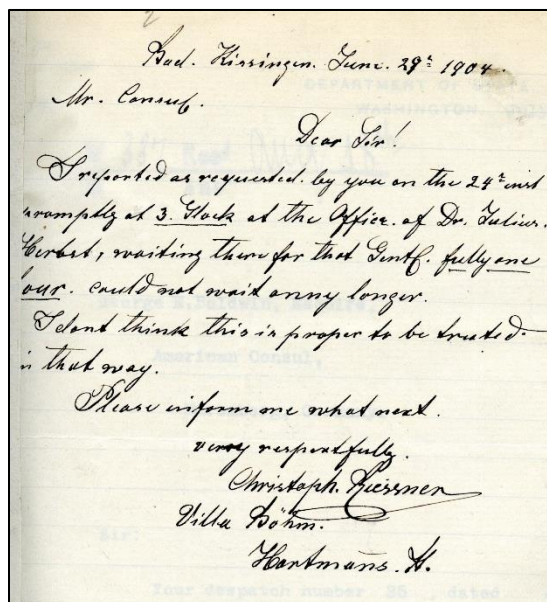 2
Bad. Kissingen. June. 29t 1904.
Mr. Consul.
Dear Sir!
I reported as requested. by you on the 24t inst
promptly at 3. Klock at the Office. of Dr. Julius.
Herbst, waiting there for that Gentl. fully one
our. could not wait anny longer.
I dont think this is proper to be treated.
in that way.
Please inform me what next.
very respectfully.
Christoph. Kiessner
Villa Böhm.
Hartmans.
DEPARTMENT OF STATE
WASHINGTON,
George H. Baldwin,
American Consul,
Sir:
Your despatch number 35, dated